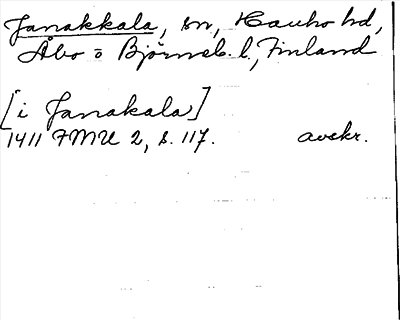 Janakkala, sn, Hauho hd,
Åbo o Björneb. l., Finland
[i Janakala]
1411 FMU 2, s. 117. avskr.